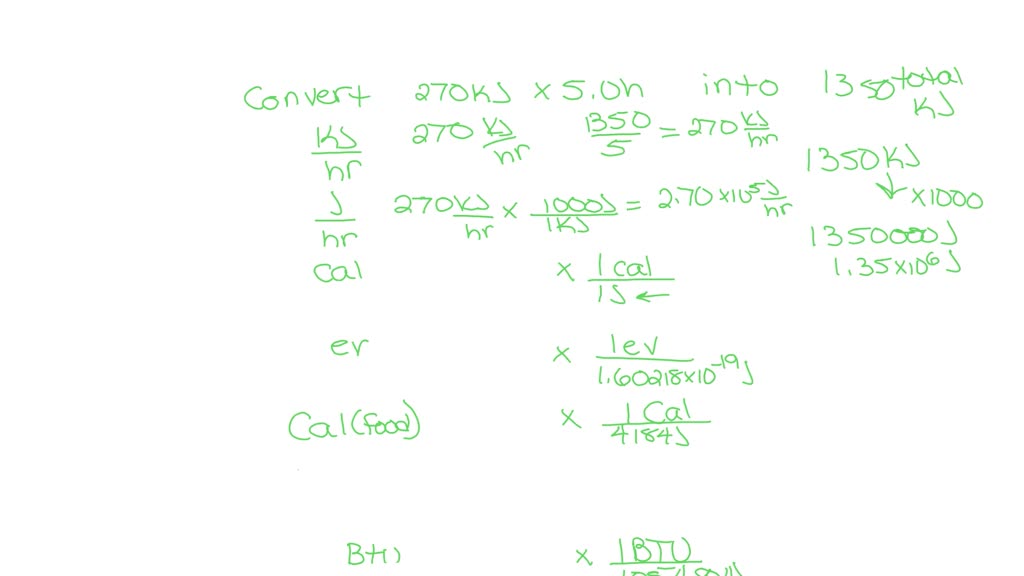 Convert 270KJ × 5.0h into 1350 total KJ
KJ/hr 270 KJ/hr 1350/5 = 270 KJ/hr
1350KJ
↓ ×1000
J/hr 270 KJ/hr × 1000J/1KJ = 2.70×10⁵ J/hr
1350000J
1.35×10⁶ J
cal × 1 cal/1J ←
ev × 1ev/1.60218×10⁻¹⁹J
Cal(food) × 1 Cal/4184J
Btu × 1BTU